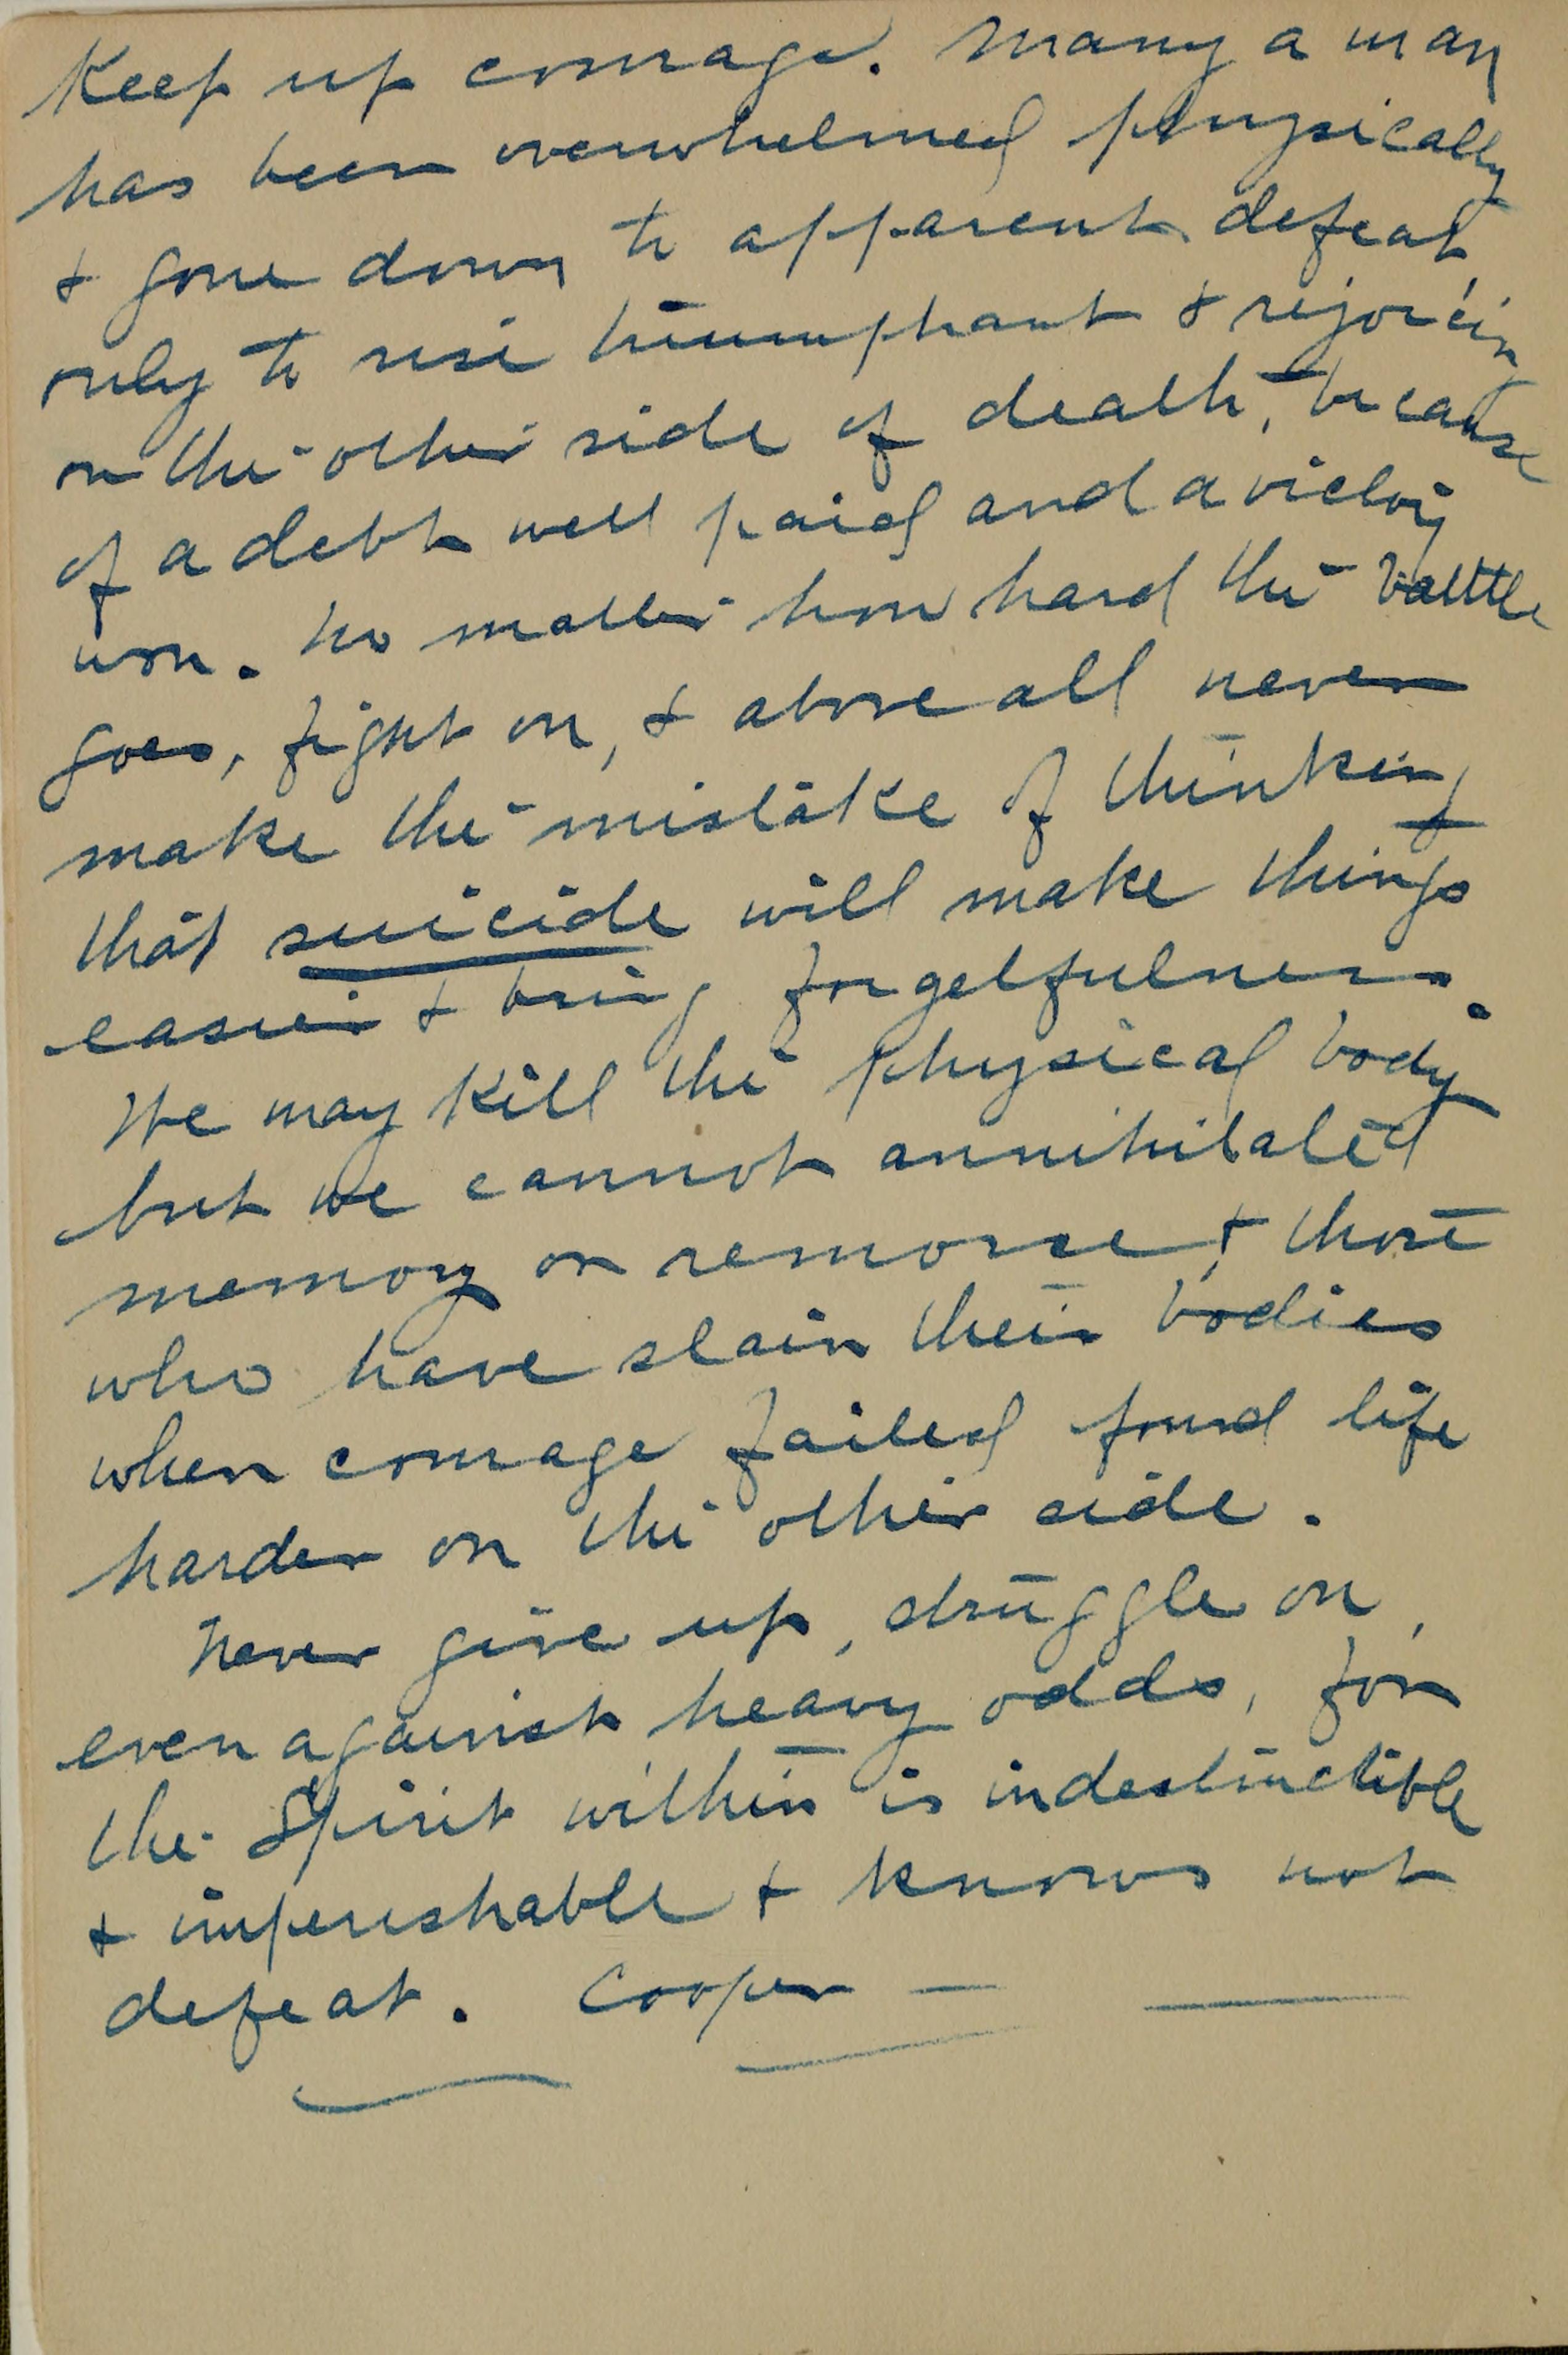 Keep up courage. Many a man
has been overwhelmed physically
& gone down to apparent defeat,
only to rise triumphant & rejoicing
on the other side of death, because
of a debt well paid and a victory
won. No matter how hard the battle
goes, fight on, & above all never
make the mistake of thinking
that suicide will make things
easier & bring forgetfulness.
We may kill the physical body
but we cannot annihilated
memory or remorse, & those
who have slain their bodies
when courage failed found life
harder on the other side.
Never give up, struggle on,
even against heavy odds, for
the Spirit within is indestructible
& imperishable & knows not
defeat. Cooper —